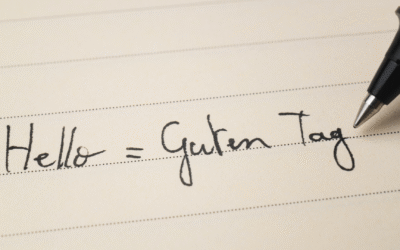 Hello = Guten Tag